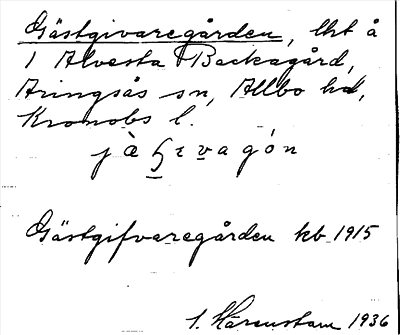 Gästgivaregården, lht å
1 Alvesta Backagård,
Aringsås sn, Allbo hd,
Kronobs l.
Gästgifvaregården kb 1915
S. Härenstam 1936